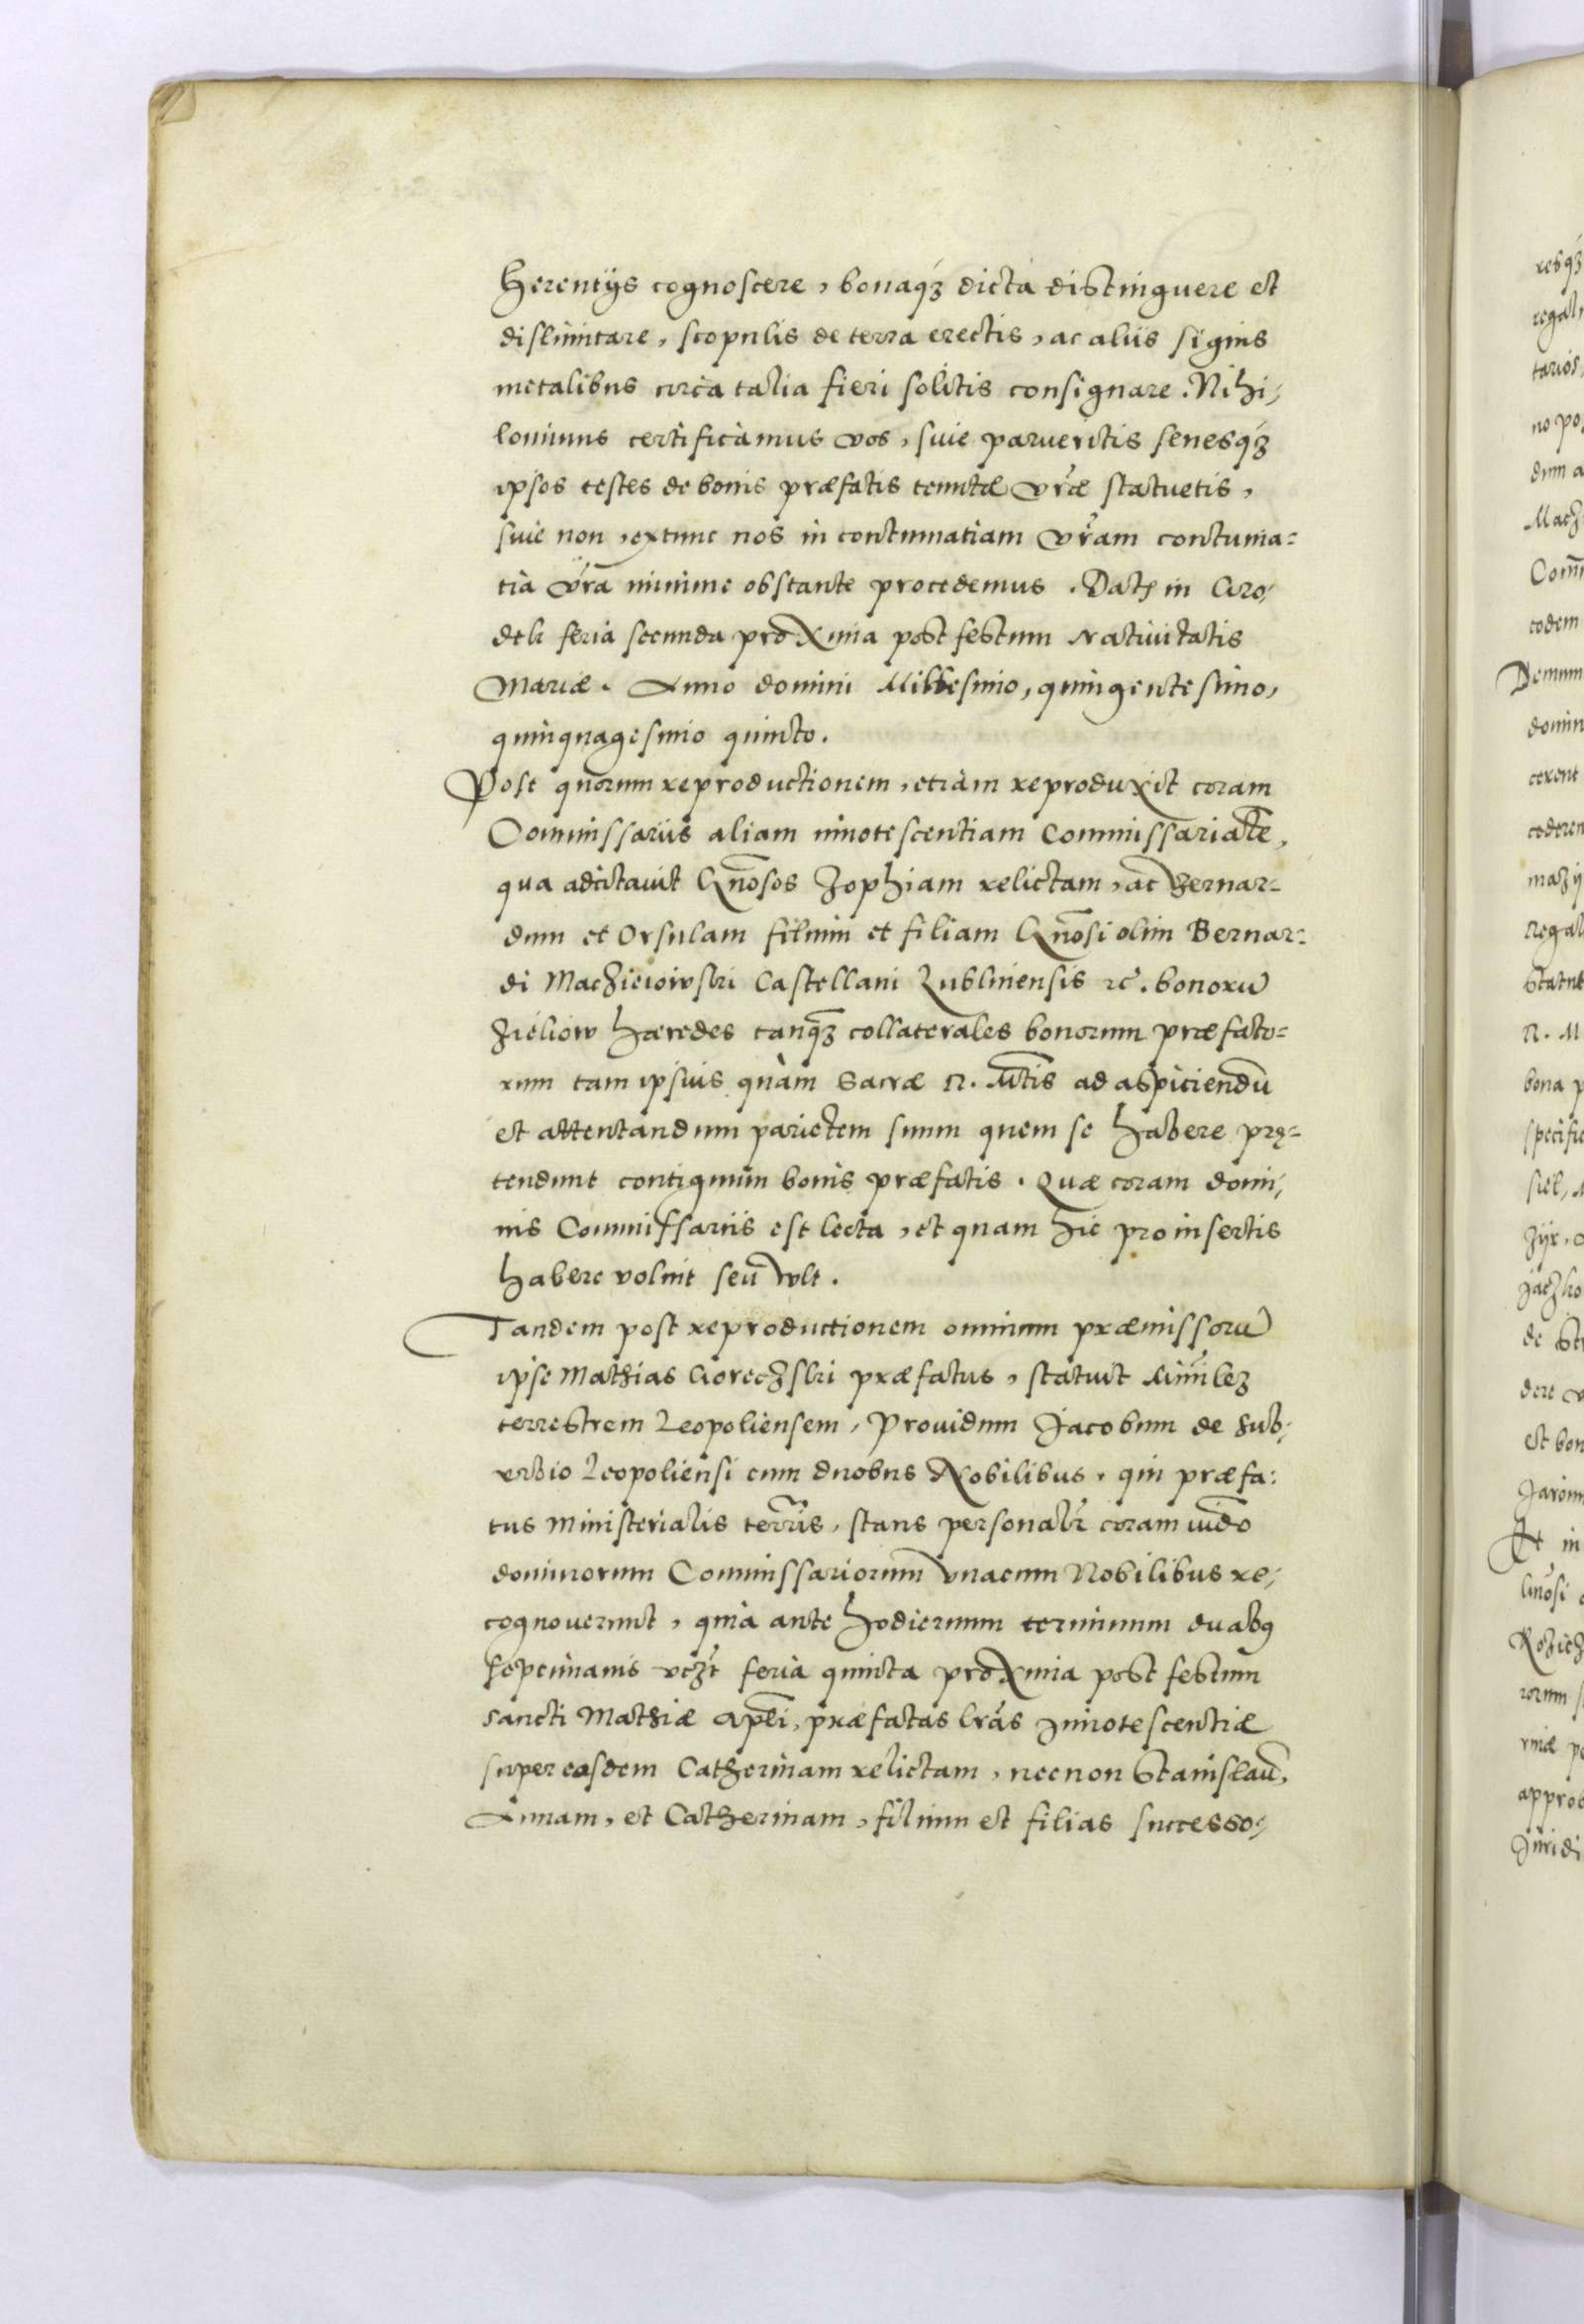 herentijs cognoscere, bonaqȝ dicta distinguere et
dislimitare, scopulis de terra erectis, ac aliis signis
metalibus circa talia fieri solitis consignare. Nihi,
lominus certificamus vos, sive parueritis senesqȝ
ipsos testes de bonis præfatis tenutæ vr̃æ statuetis,
sive non, extunc nos in contumatiam vr̃am contuma=
tia vr̃a minime obstante procedemus. Datȝ in Gro,
dek feria secunda proxima post festum Nativitatis
Mariæ. Anno domini Millesimo, quingentesimo,
quinquagesimo quinto.
Post quorum reproductionem, etiam reproduxit coram
Commissariis aliam innotescentiam Commissarialē,
qua adcitavit Gn̄osos Zophiam relictam, ac Bernar=
dum et Orsulam filium et filiam Gn̄osi olim Bernar=
di Macziewski Castellani Lublinensis rč. bonorū
Zieliow hæredes tanqȝ collaterales bonorum præfato=
rum tam ipsius quàm Sacræ R. Mt̄is ad aspiciendū
et attentandum parietem suum quem se habere prę=
tendunt contiguum bonis præfatis. Quæ coram domi,
nis Commissariis est lecta, et quam hic pro insertis
habere voluit seu vult.
Tandem post reproductionem omnium præmissorū
ipse Mathias Goreczski præfatus, statuit Minīleȝ
terrestrem Leopoliensem, Providum Jacobum de Sub,
urbio Leopoliensi cum duobus Nobilibus. qui præfa:
tus Ministerialis terrr̃is, stans personalr̃ coram iud̄o
dominorum Commissariorum unacum Nobilibus re,
cognoverunt, quia ante hodiernum terminum duabꝰ
septimanis vcȝt feria quinta proxima post festum
sancti Mathiæ Ap̄li, præfatas lr̃as Innotescentiæ
super easdem Catherinam relictam, necnon Stanislaū,
Annam, et Catherinam, filium et filias successo,